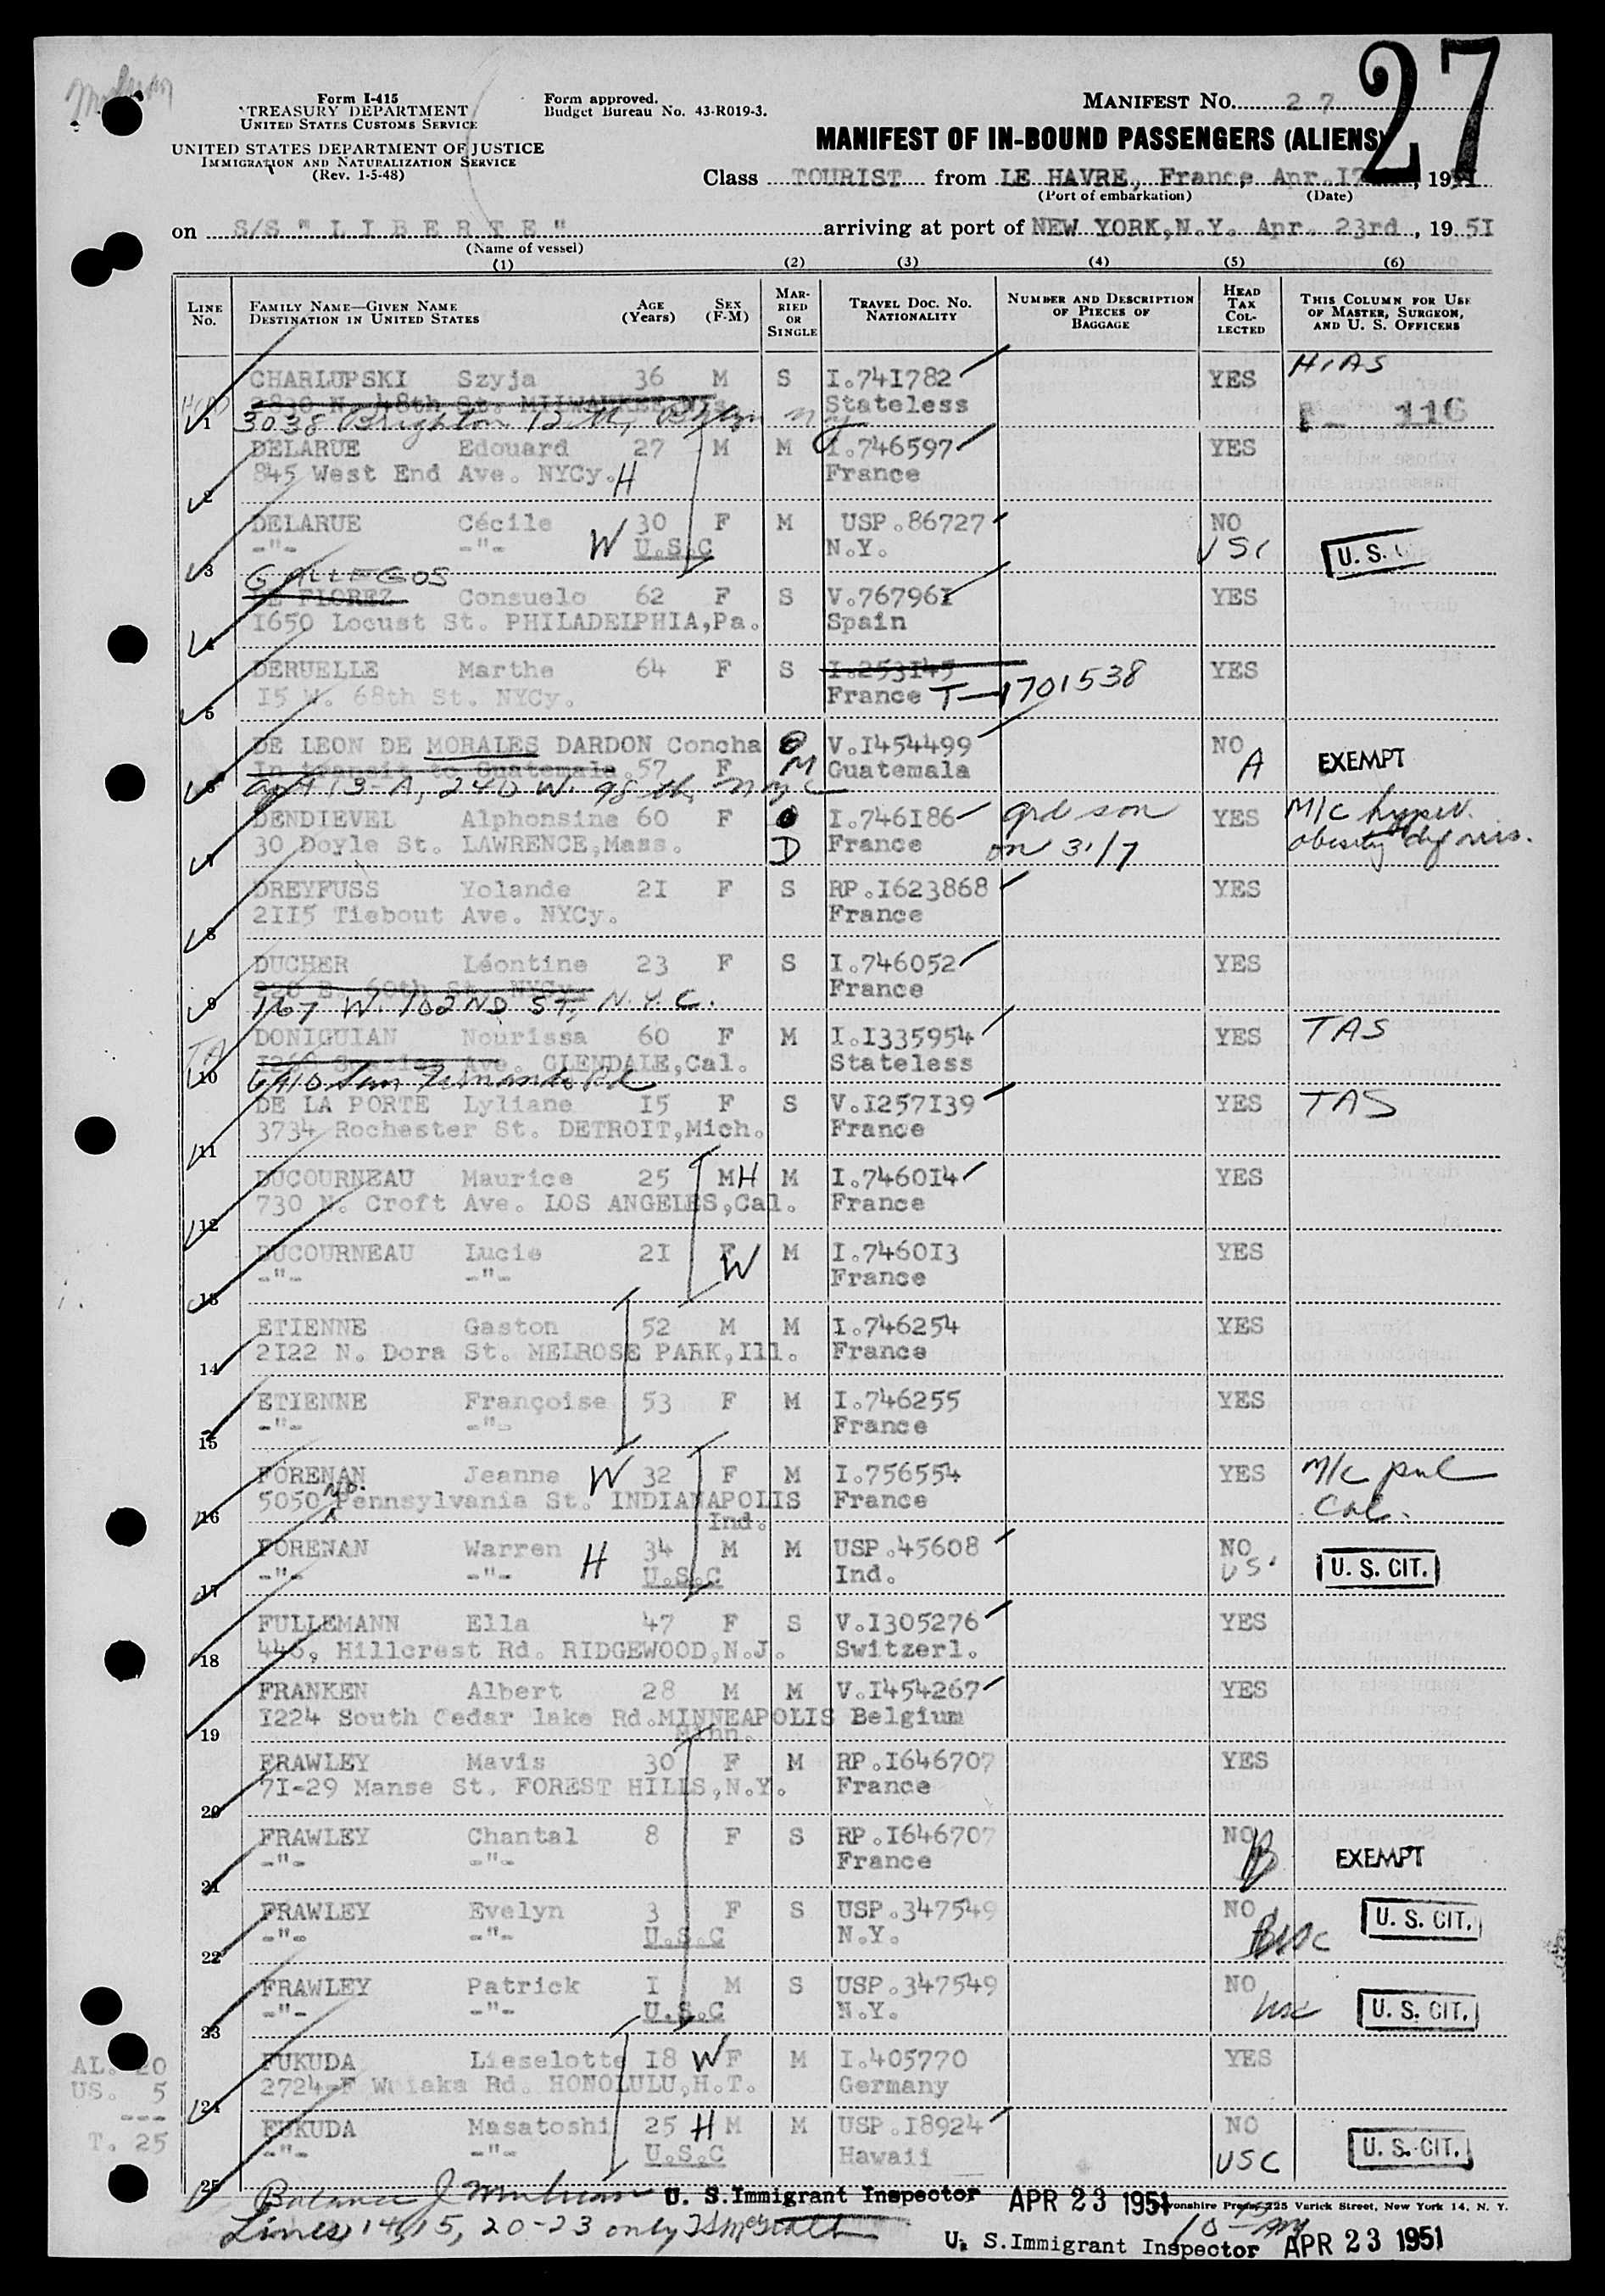 27
Form I-415
TREASURY DEPARTMENT
UNITED STATES CUSTOMS SERVICE
UNITED STATES DEPARTMENT OF JUSTICE
IMMIGRATION AND NATURALIZATION SERVICE
(Rev. 1-5-48)
Form approved.
Budget Bureau No. 43-R019-3.
MANIFEST NO. 27
MANIFEST OF IN-BOUND PASSENGERS (ALIENS)
Class TOURIST from LE HAVRE, France Apr.17, 1951
(Port of embarkation) (Date)
on S/S "LIBERTE" arriving at port of NEW YORK,N.Y. Apr. 23rd, 1951
(Name of vessel)
(1) (2) (3) (4) (5) (6)
LINE NO. FAMILY NAME—GIVEN NAME DESTINATION IN UNITED STATES AGE (Years) SEX (F-M) MARRIED OR SINGLE TRAVEL DOC. NO. NATIONALITY NUMBER AND DESCRIPTION OF PIECES OF BAGGAGE HEAD TAX COLLECTED THIS COLUMN FOR USE OF MASTER, SURGEON, AND U. S. OFFICERS
CHARLUPSKI Szyja 36 M S I.741782 YES HIAS
48th St. MILWAUKEE Stateless 116
1 3038 Brighton 12th, Bklyn NY
DELARUE Edouard 27 M M I.746597 YES
845 West End Ave. NYCy. H France
2
DELARUE Cécile 30 F M USP.86727 NO
-"- -"- W U.S.C N.Y. USC U.S.
3 GALLEGOS
DE FLOREZ Consuelo 62 F S V.767961 YES
1650 Locust St. PHILADELPHIA,Pa. Spain
4
DERUELLE Marthe 64 F S I.253145 YES
15 W. 68th St. NYCy. France T-1701538
5
DE LEON DE MORALES DARDON Concha V.1454499 NO
In transit to Guatemala. 57 F M Guatemala A EXEMPT
6 apt 13-A, 240 W. 98th, NYC
DENDIEVEL Alphonsine 60 F I.746186 grd son YES M/C hyper.
30 Doyle St. LAWRENCE,Mass. D France on 31/7 obesity def vis.
7
DREYFUSS Yolande 21 F S RP.1623868 YES
2115 Tiebout Ave. NYCy. France
8
DUCHER Léontine 23 F S I.746052 YES
60th St. NYCy. France
9 167 W. 102ND ST, N.Y.C.
DONIGUIAN Nourissa 60 F M I.1335954 YES TAS
Ave. GLENDALE,Cal. Stateless
10 6410 San Fernando Rd
DE LA PORTE Lyliane 15 F S V.1257139 YES TAS
3734 Rochester St. DETROIT,Mich. France
11
DUCOURNEAU Maurice 25 M H M I.746014 YES
730 N. Croft Ave. LOS ANGELES,Cal. France
12
DUCOURNEAU Lucie 21 F M I.746013 YES
-"- -"- W France
13
ETIENNE Gaston 52 M M I.746254 YES
2122 N. Dora St. MELROSE PARK,Ill. France
14
ETIENNE Françoise 53 F M I.746255 YES
-"- -"- France
15
FORENAN Jeanne W 32 F M I.756554 YES M/C pul
5050 No. Pennsylvania St. INDIANAPOLIS France Cal.
16 Ind.
FORENAN Warren 34 M M USP.45608 NO
-"- -"- H U.S.C Ind. US. U. S. CIT.
17
FULLEMANN Ella 47 F S V.1305276 YES
446, Hillcrest Rd. RIDGEWOOD,N.J. Switzerl.
18
FRANKEN Albert 28 M M V.1454267 YES
1224 South Cedar lake Rd.MINNEAPOLIS Belgium
19 Minn.
FRAWLEY Mavis 30 F M RP.1646707 YES
71-29 Manse St. FOREST HILLS,N.Y. France
20
FRAWLEY Chantal 8 F S RP.1646707 NO
-"- -"- France B EXEMPT
21
FRAWLEY Evelyn 3 F S USP.347549 NO U. S. CIT.
-"- -"- U.S.C N.Y.
22
FRAWLEY Patrick 1 M S USP.347549 NO
-"- -"- U.S.C N.Y. usc U. S. CIT.
23
FUKUDA Lieselotte 18 W F M I.405770 YES
2724-F Waiaka Rd. HONOLULU,H.T. Germany
24
FUKUDA Masatoshi 25 H M M USP.18924 NO
-"- -"- U.S.C Hawaii USC U. S. CIT.
25
AL. 20
US. 5
---
T. 25
Balance J U. S. Immigrant Inspector APR 23 1951 Press, 225 Varick Street, New York 14, N. Y.
Lines 14, 15, 20-23 only 10 AM
U. S. Immigrant Inspector APR 23 1951